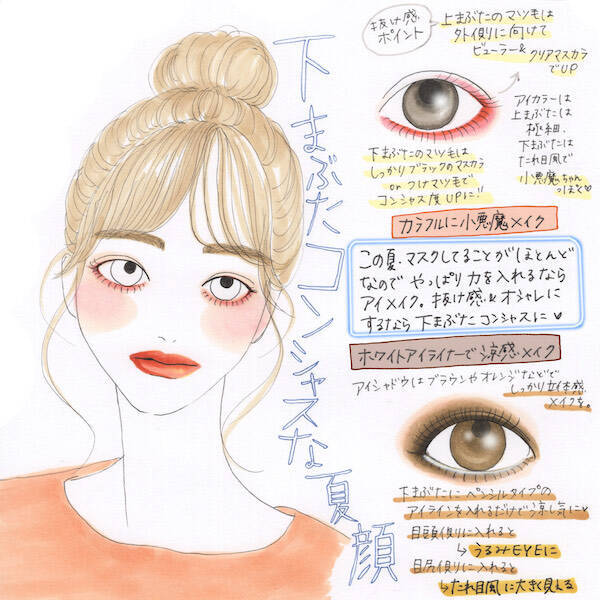 下まぶたコンシャスな夏顔
抜け感
ポイント
上まぶたのマツ毛は
外イ則りに向けて
ビューラー&クリアマスカラ
でUP
アイカラーは
上まぶたは
極細、
下まぶたは
たれ目風で
小悪魔ちゃん
っぽく♡
下まぶたのマツ毛は
しっかりブラックのマスカラ
orつけマツ毛で
コンシャス度UPに!!
カラフルに小悪魔メイク
この夏、マスクしてることがほとんど
なので やっぱり力を入れるなら
アイメイク。抜け感&オシャレに
するなら下まぶたコンシャスに♥
ホワイトアイライナーで涼感メイク
アイシャドウはブラウンやオレンジなどで
しっかり立体感
メイクを。
下まぶたにペンシルタイプの
アイラインを入れるだけで涼し気に♡
目頭側に入れると
↳うるみEYEに
目尻側に入れると
↳たれ目風に大きく見える